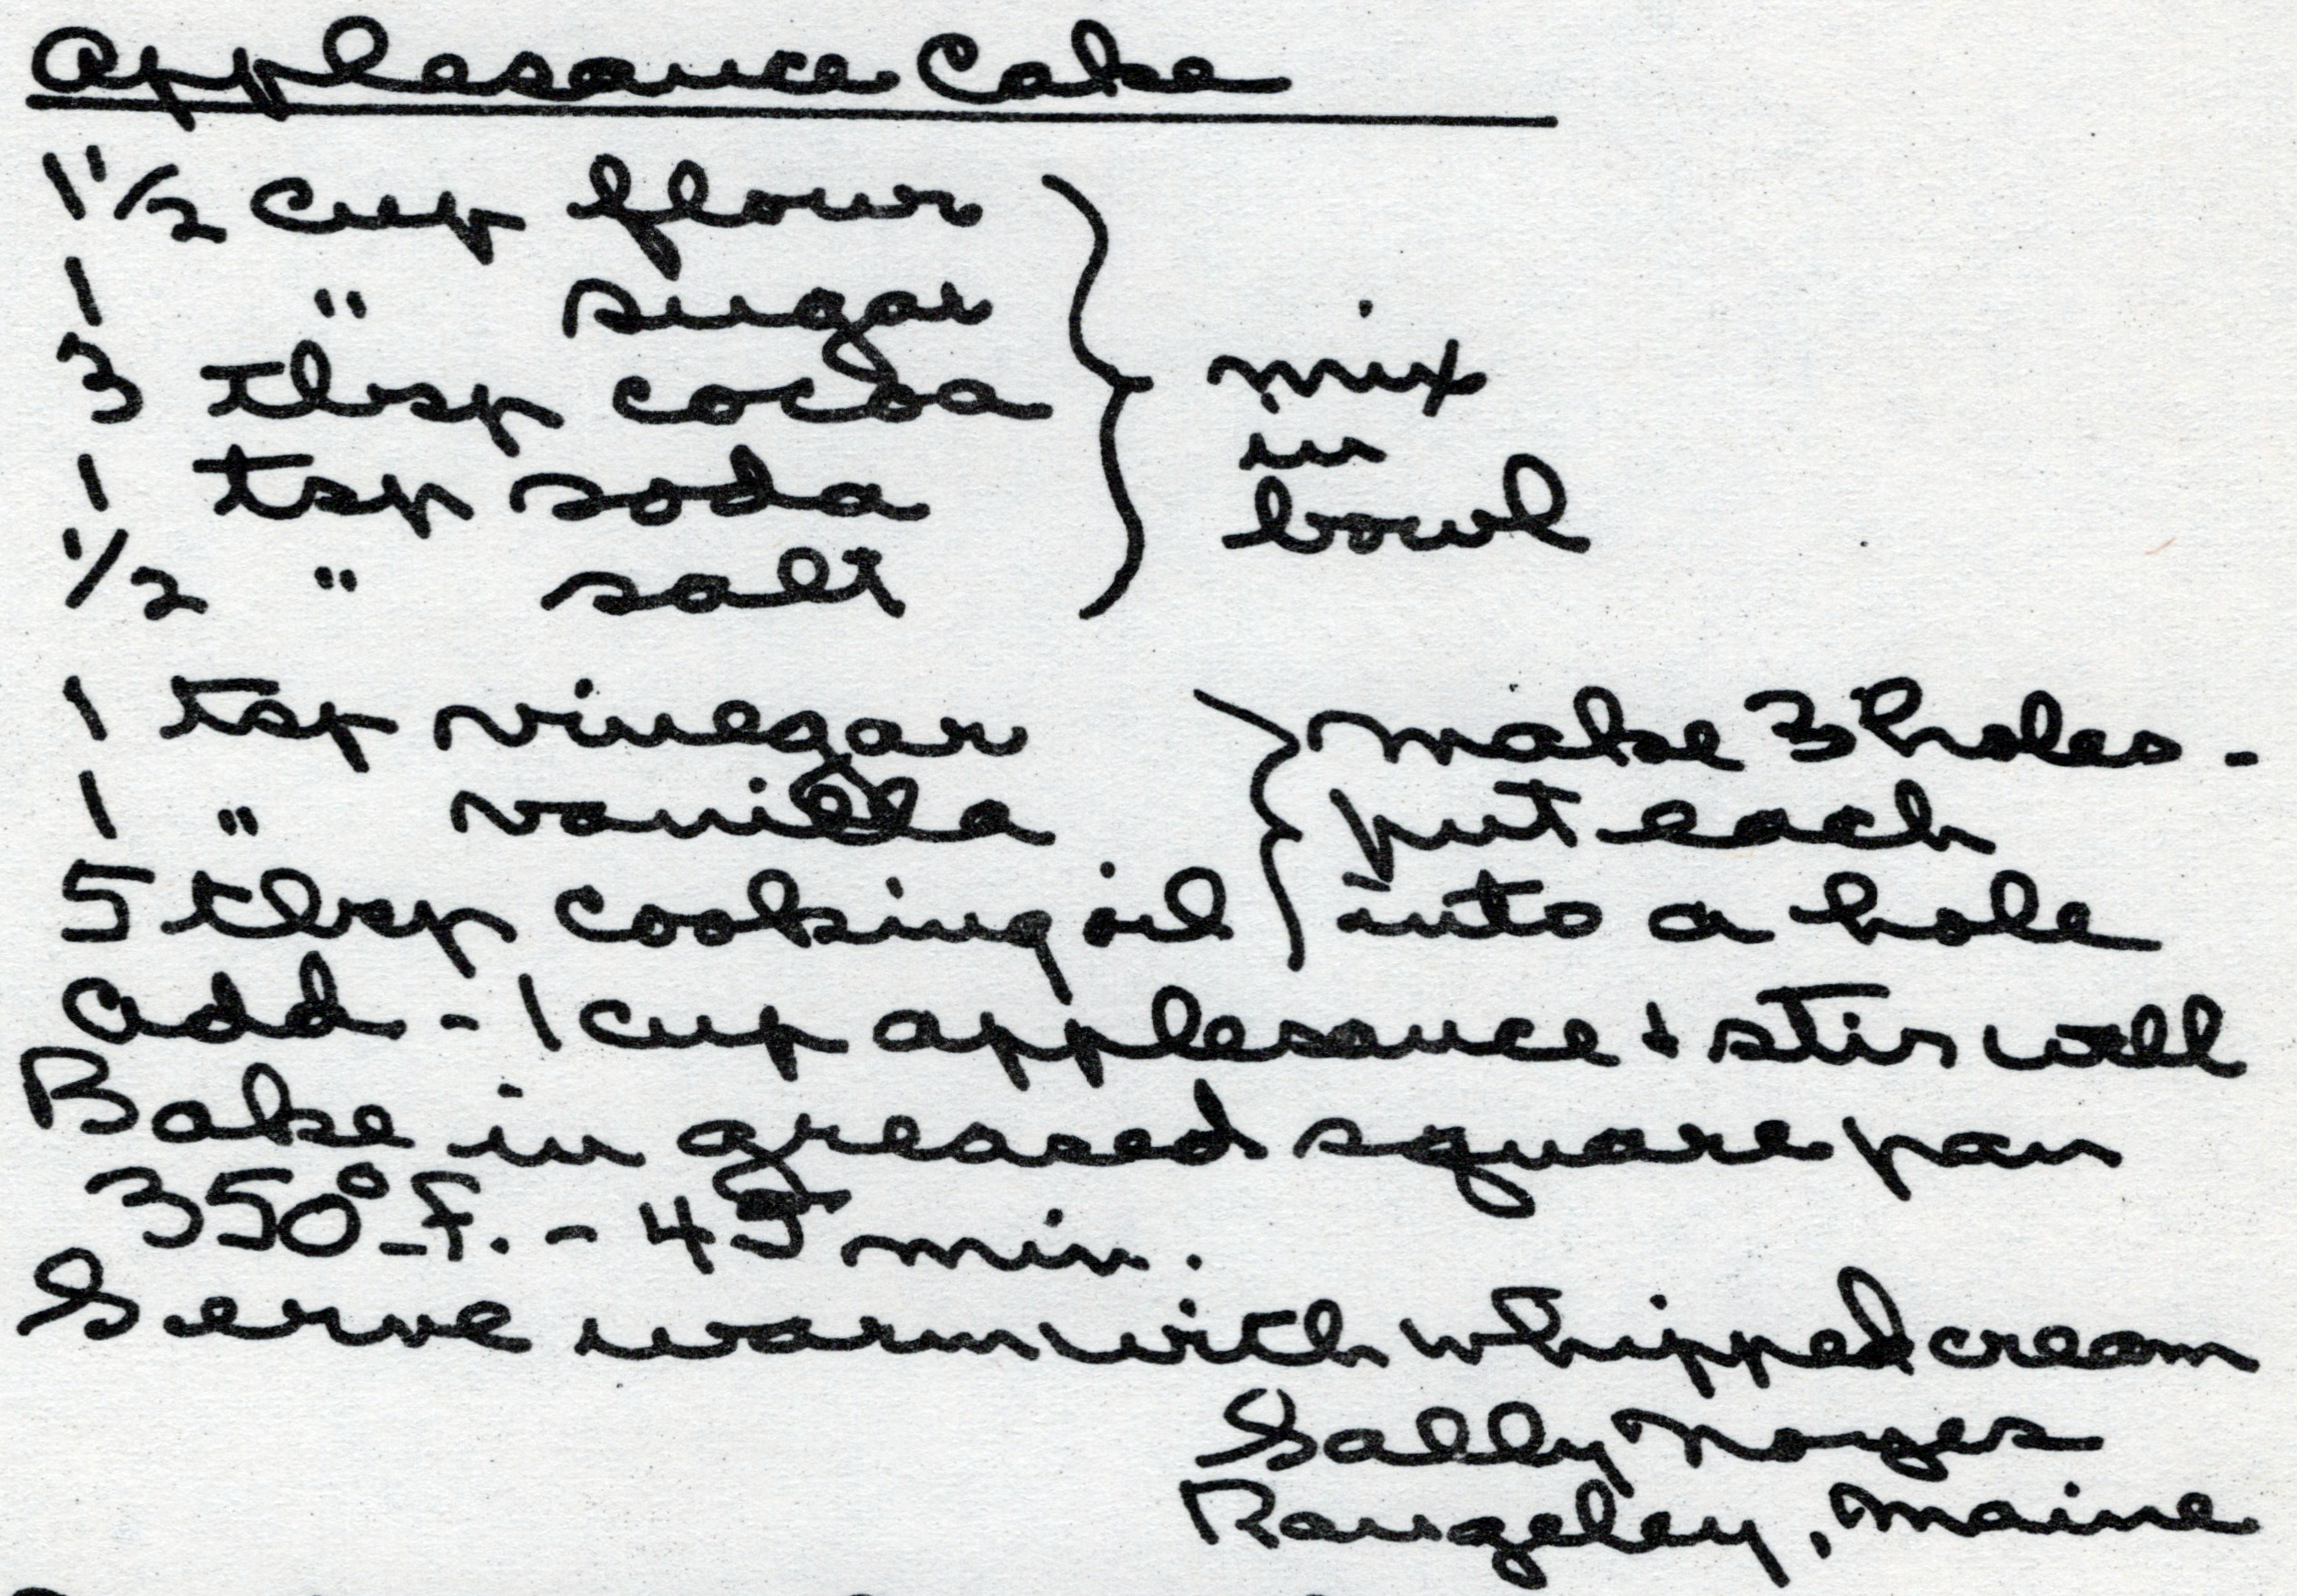 Applesauce Cake
1 1/2 cup flour
1 " sugar
3 tbsp cocoa
1 tsp soda
1/2 " salt
} mix
in
bowl
1 tsp vinegar
1 " vanilla
5 tbsp cooking oil
} make 3 holes -
put each
into a hole
add - 1 cup applesauce + stir well
Bake in greased square pan
350° F. - 45 min.
Serve warm with whipped cream
Sally Noyes
Rangeley, Maine